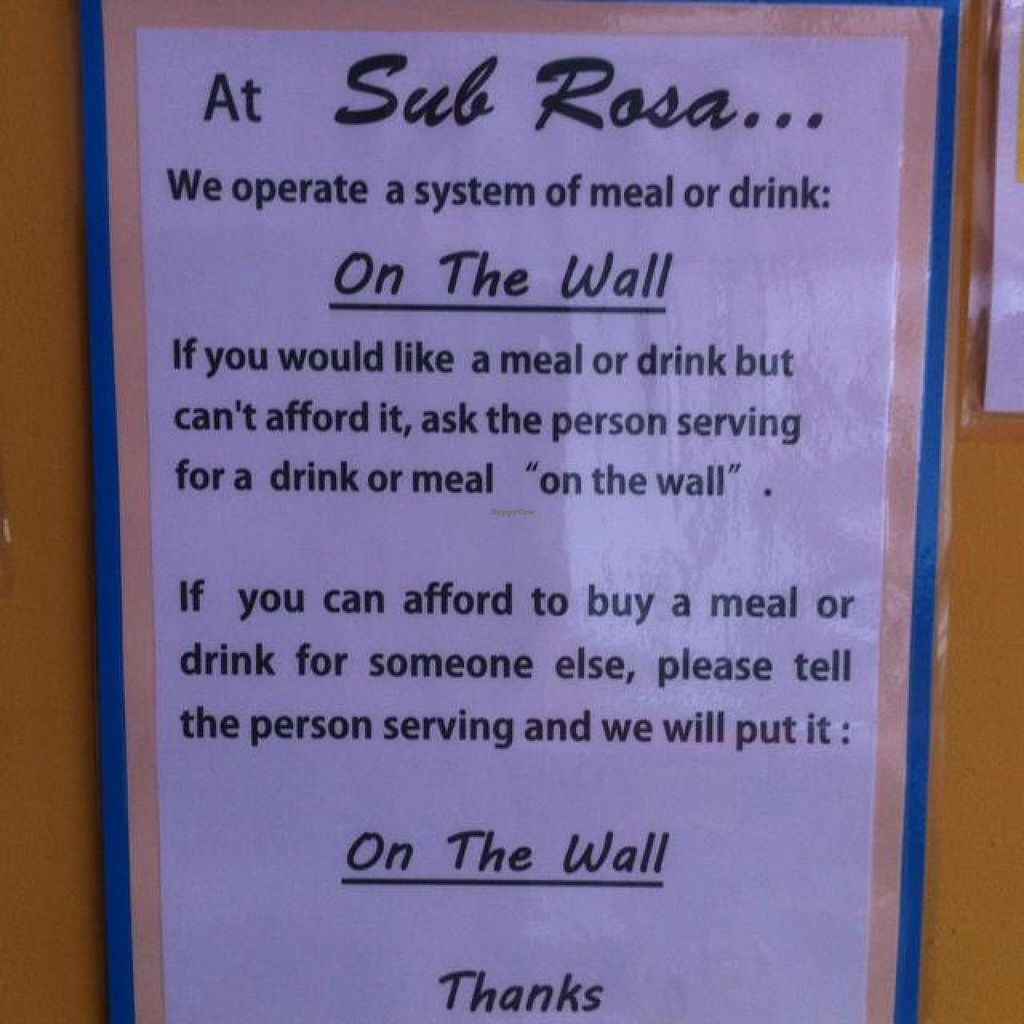 At Sub Rosa...
We operate a system of meal or drink:
On The Wall
If you would like a meal or drink but
can't afford it, ask the person serving
for a drink or meal “on the wall” .
HappyCow
If you can afford to buy a meal or
drink for someone else, please tell
the person serving and we will put it :
On The Wall
Thanks